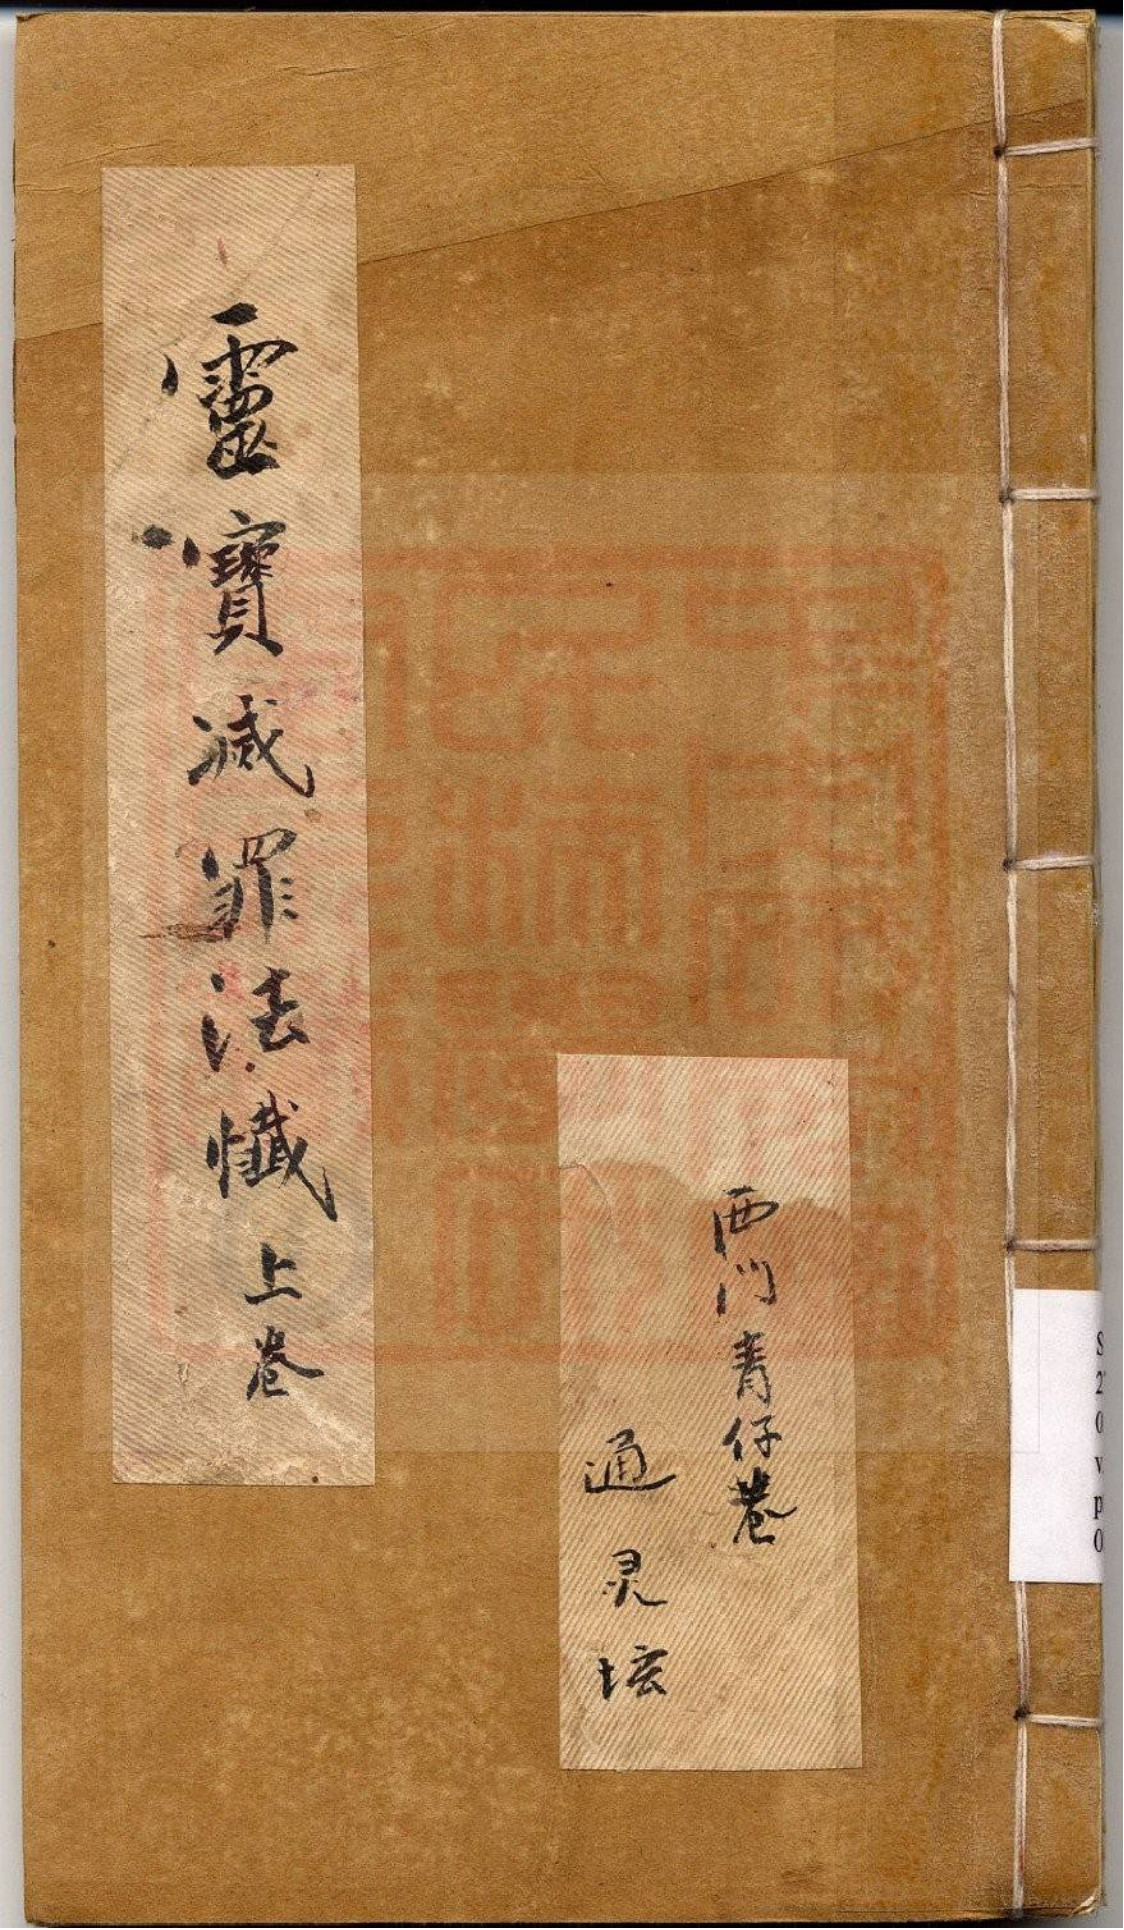 靈寶滅罪法懺上卷
西门青仔巷
通灵坛
S
2
0
v.
p
0